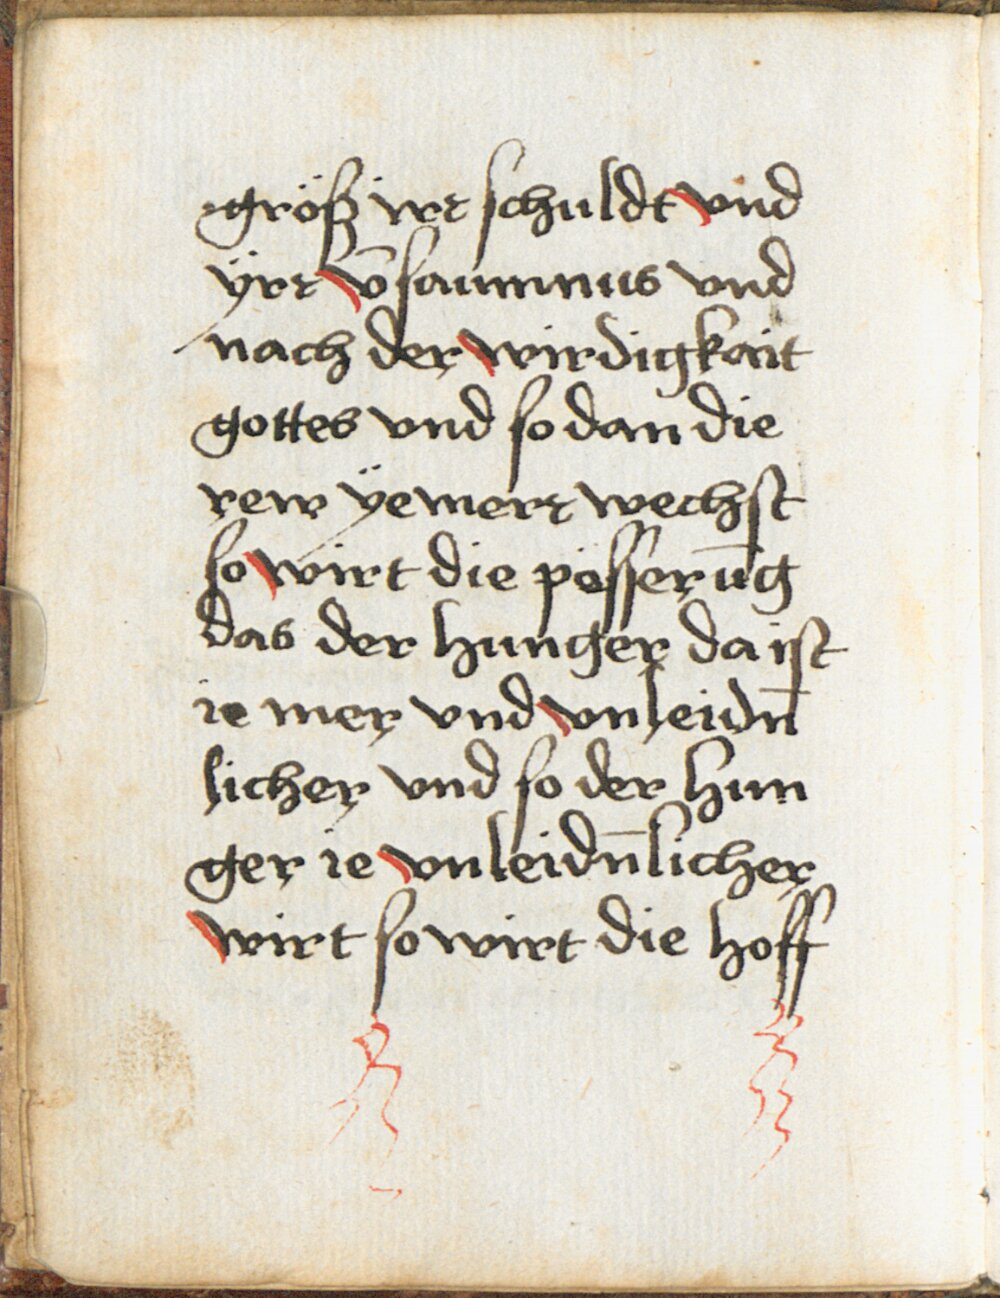 größ irr schuldt vnd
ÿrr v̄saumnus vnd
nach der wirdigkait
gottes vnd so dan die
rew ÿemerr wechst
so wirt die pösserūg
das der hunger da ist
ie mer vnd vnleidn̄
licher vnd so der hun
ger ie vnleidn̄licher
wirt so wirt die hoff